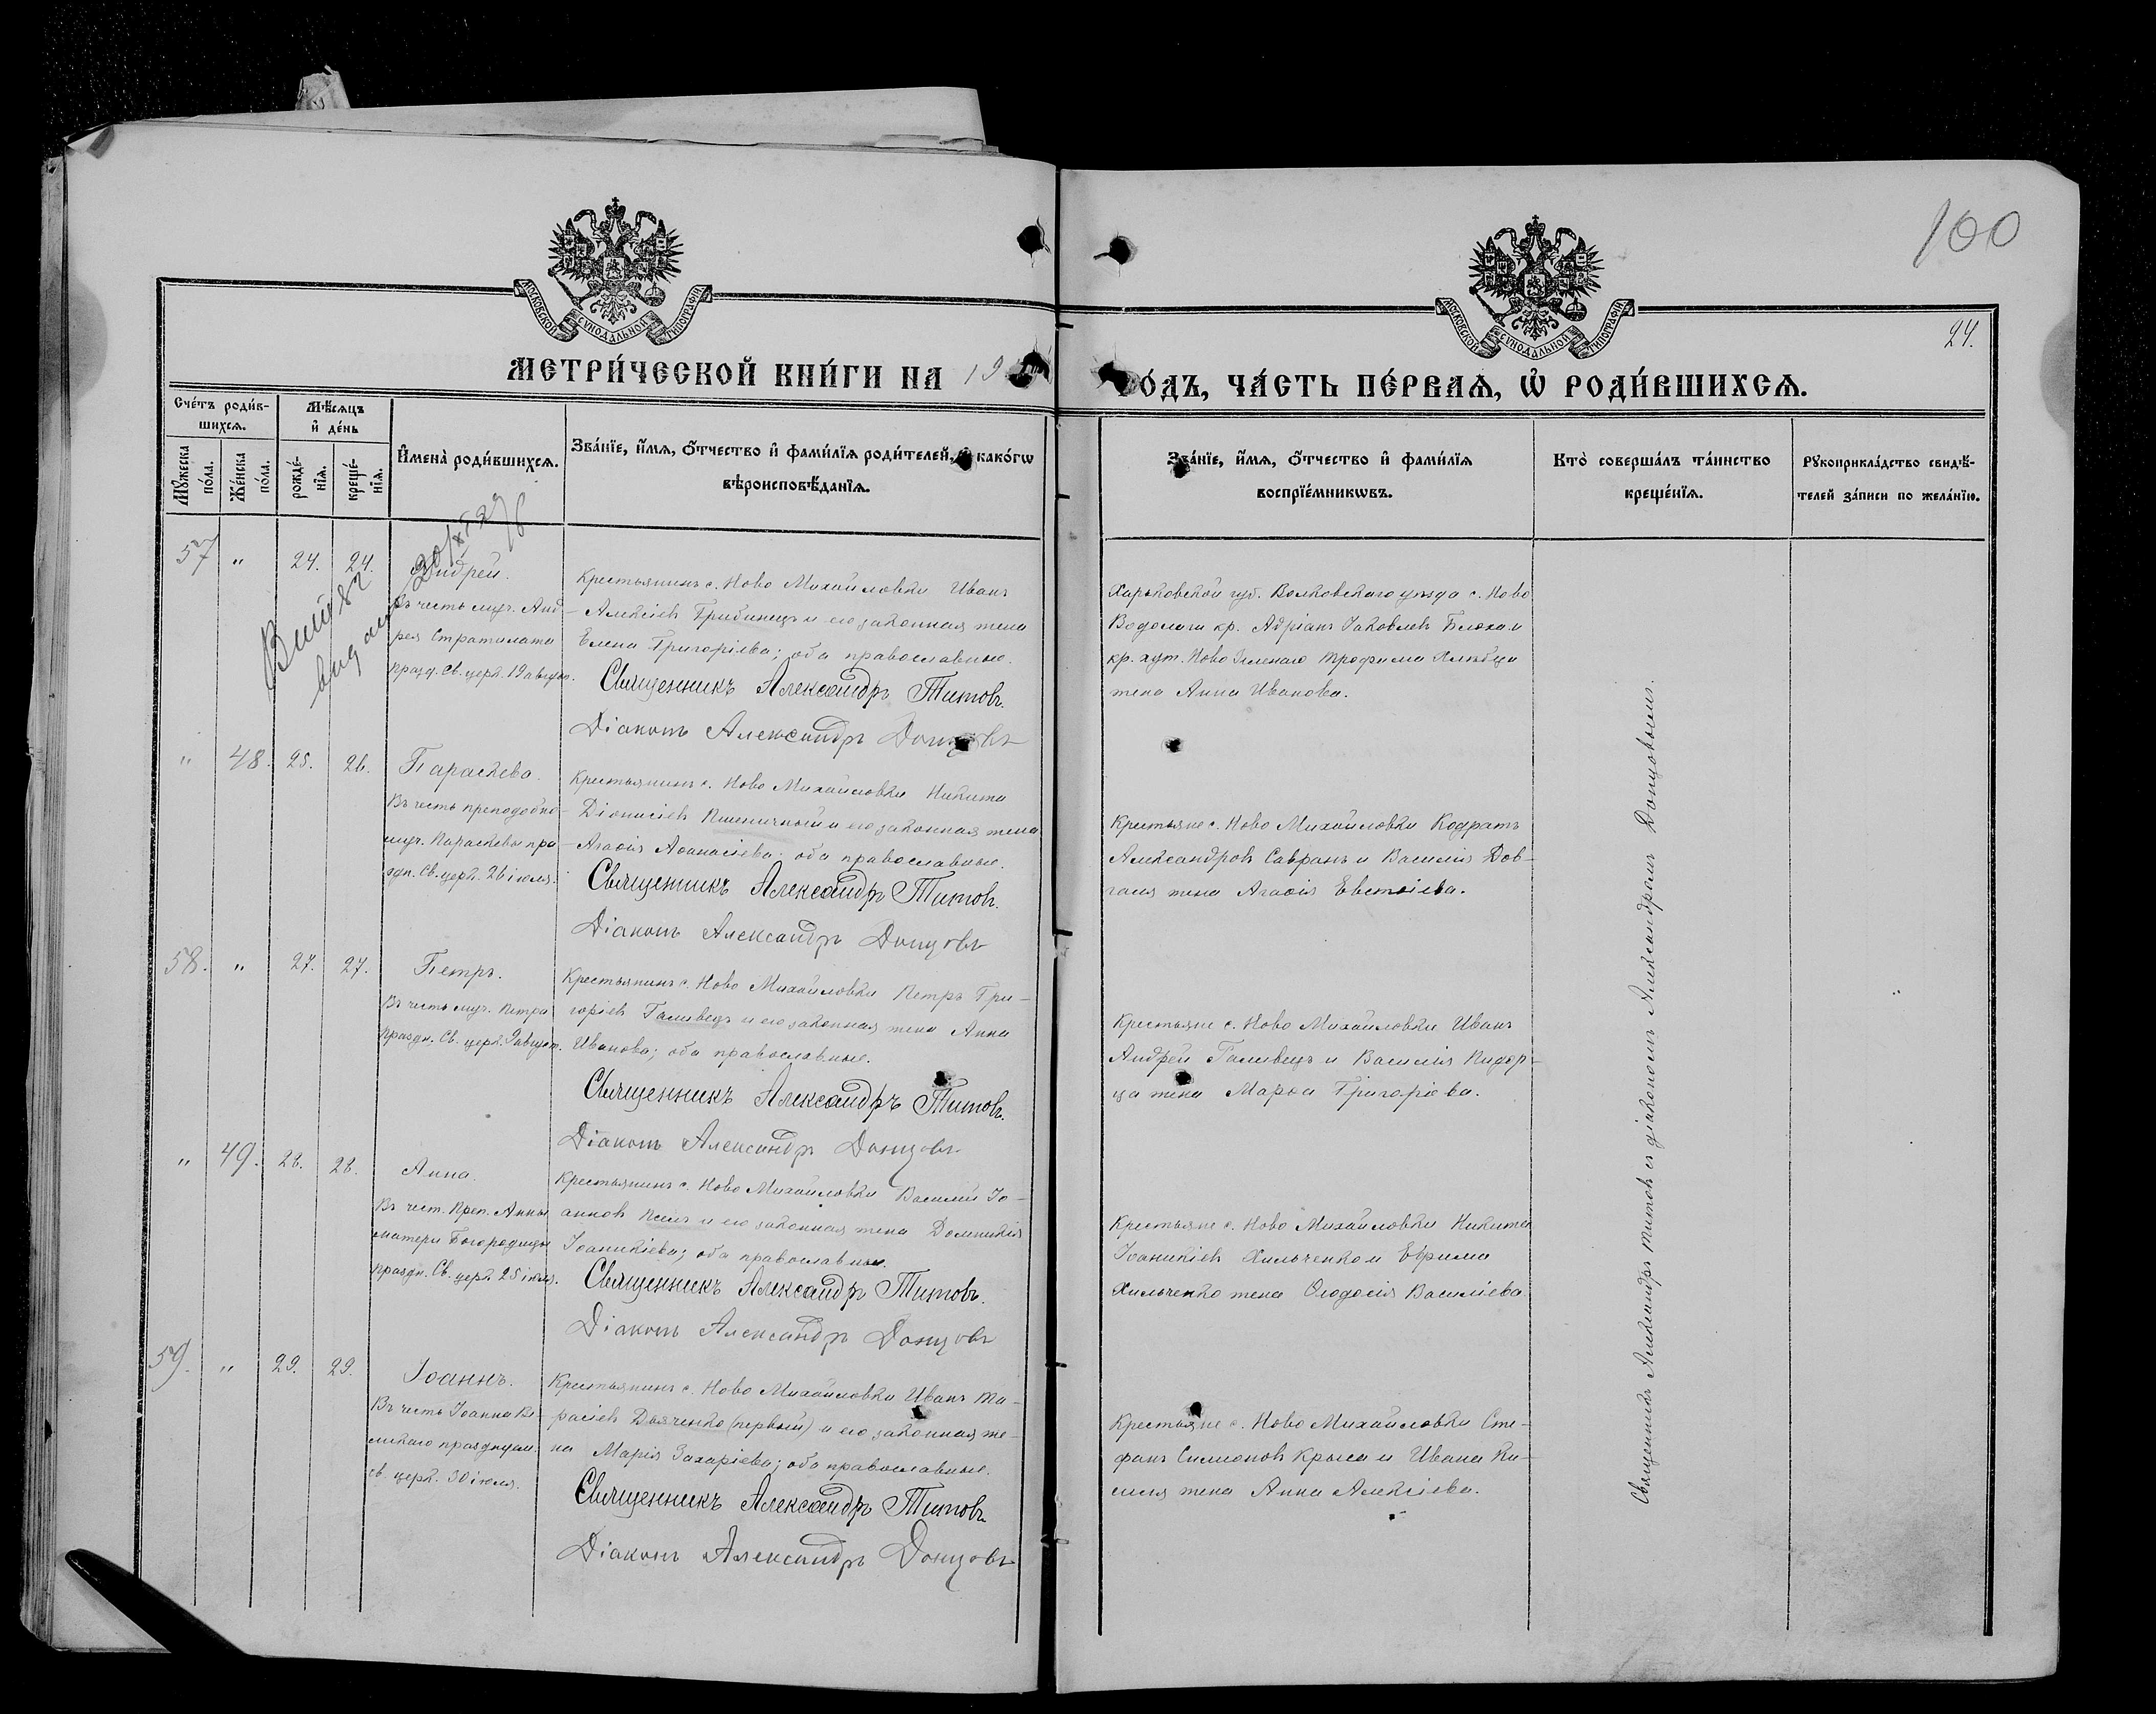 100
24.
МОСКОВСКОЙ СѴНОДАЛЬНОЙ ТИПОГРАФІИ
МОСКОВСКОЙ СѴНОДАЛЬНОЙ ТИПОГРАФІИ
МЕТРИ́ЧЕСКОЙ КНИ́ГИ НА 19
О́ДЪ, ЧА́СТЬ ПЕ́РВАѦ, Ѡ҆ РОДИ́ВШИХСѦ.
Сче́тъ роди́в-
шихсѧ.
Мꙋ́жеска по́ла.
Же́нска по́ла.
Мѣ́сѧцъ
и҆ де́нь
рожде́-
нїѧ.
креще́-
нїѧ.
И҆мена̀ роди́вшихсѧ.
Зва́нїе, и҆́мѧ, ѻ҆́тчество и҆ фами́лїѧ роди́телей, како́гѡ
вѣроисповѣ́данїѧ.
Зва́нїе, и҆́мѧ, ѻ҆́тчество и҆ фами́лїѧ
воспрїе́мникѡвъ.
Кто̀ соверша́лъ та́инство
креще́нїѧ.
Рꙋкоприкла́дство свидѣ́-
телей за́писи по жела́нїю.
57 " 24. 24. Андрей.
Въ честь муч. Анд-
рея Стратилата
празд. Св. церк. 19 август.
Крестьянинъ с. Ново Михайловки Иванъ
Алексіевъ Грибинецъ и его законная жена
Елена Григоріева; оба православные.
Священникъ Александръ Титовъ.
Діаконъ Александръ Донцовъ
Харьковской губ. Волковскаго уѣзда с. Ново
Водолаги кр. Адріанъ Іаковлевъ Блоха и
кр. хут. Ново Зеленаго Трофима
жена Анна Иванова.
" 48. 25. 26. Параскева.
Въ честь преподобно-
муч. Параскевы пра
здн. Св. церк. 26 іюля.
Крестьянинъ с. Ново Михайловки Никита
Діонисіевъ Пшеничный и его законная жена
Агаѳія Аѳанасіева; оба православные.
Священникъ Александръ Титовъ.
Діаконъ Александръ Донцовъ
Крестьяне с. Ново Михайловки Кодратъ
Александровъ Савранъ и Василія Дов-
галя жена Агаѳія Евстаѳіева.
58. " 27. 27. Петръ.
Въ честь муч. Петра
праздн. Св. церк. август.
Крестьянинъ с. Ново Михайловки Петръ Гри-
горіевъ Галивецъ и его законная жена Анна
Иванова; оба православные.
Священникъ Александръ Титовъ.
Діаконъ Александръ Донцовъ
Крестьяне с. Ново Михайловки Иванъ
Андрей Галивецъ и Василія Пидор-
ца жена Марѳа Григоріева.
" 49. 28. 28. Анна.
Въ чест. Прав. Анны
матери Богородицы
праздн. Св. церк. 25 іюля.
Крестьянинъ с. Ново Михайловки Василій Іо-
анновъ и его законная жена Домникія
Іоаникіева; оба православные.
Священникъ Александръ Титовъ.
Діаконъ Александръ Донцовъ
Крестьяне с. Ново Михайловки Никита
Іоаникіевъ Хильченко и Ефрима
Хильченко жена Ѳеодосія Василіева
59. " 29. 29. Іоаннъ.
Въ честь Іоанна Во-
св. церк. 30 іюля.
Крестьянинъ с. Ново Михайловки Иванъ Та-
расіевъ Дьяченко (первый) и его законная же-
на Марія Захаріева; оба православные.
Священникъ Александръ Титовъ
Діаконъ Александръ Донцовъ
Крестьяне с. Ново Михайловки Сте-
фанъ Симоновъ Крыса и Ивана Ки-
селя жена Анна Алексіева.
Священникъ Александръ Титовъ съ діакономъ Александромъ Донцовымъ.